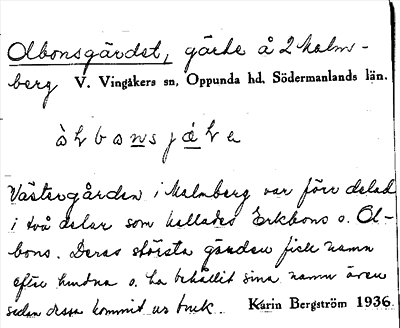 Olbonsgärdet, gärde å 2 Malm-
berg V. Vingåkers sn, Oppunda hd, Södermanlands län.
Västergården i Malmberg var förr delad
i två delar som kallades Erkbons o. Ol-
bons. Deras största gärden fick namn
efter hundna o. ha behållit sina namn även
sedan dessa kommit ur bruk. Karin Bergström 1936